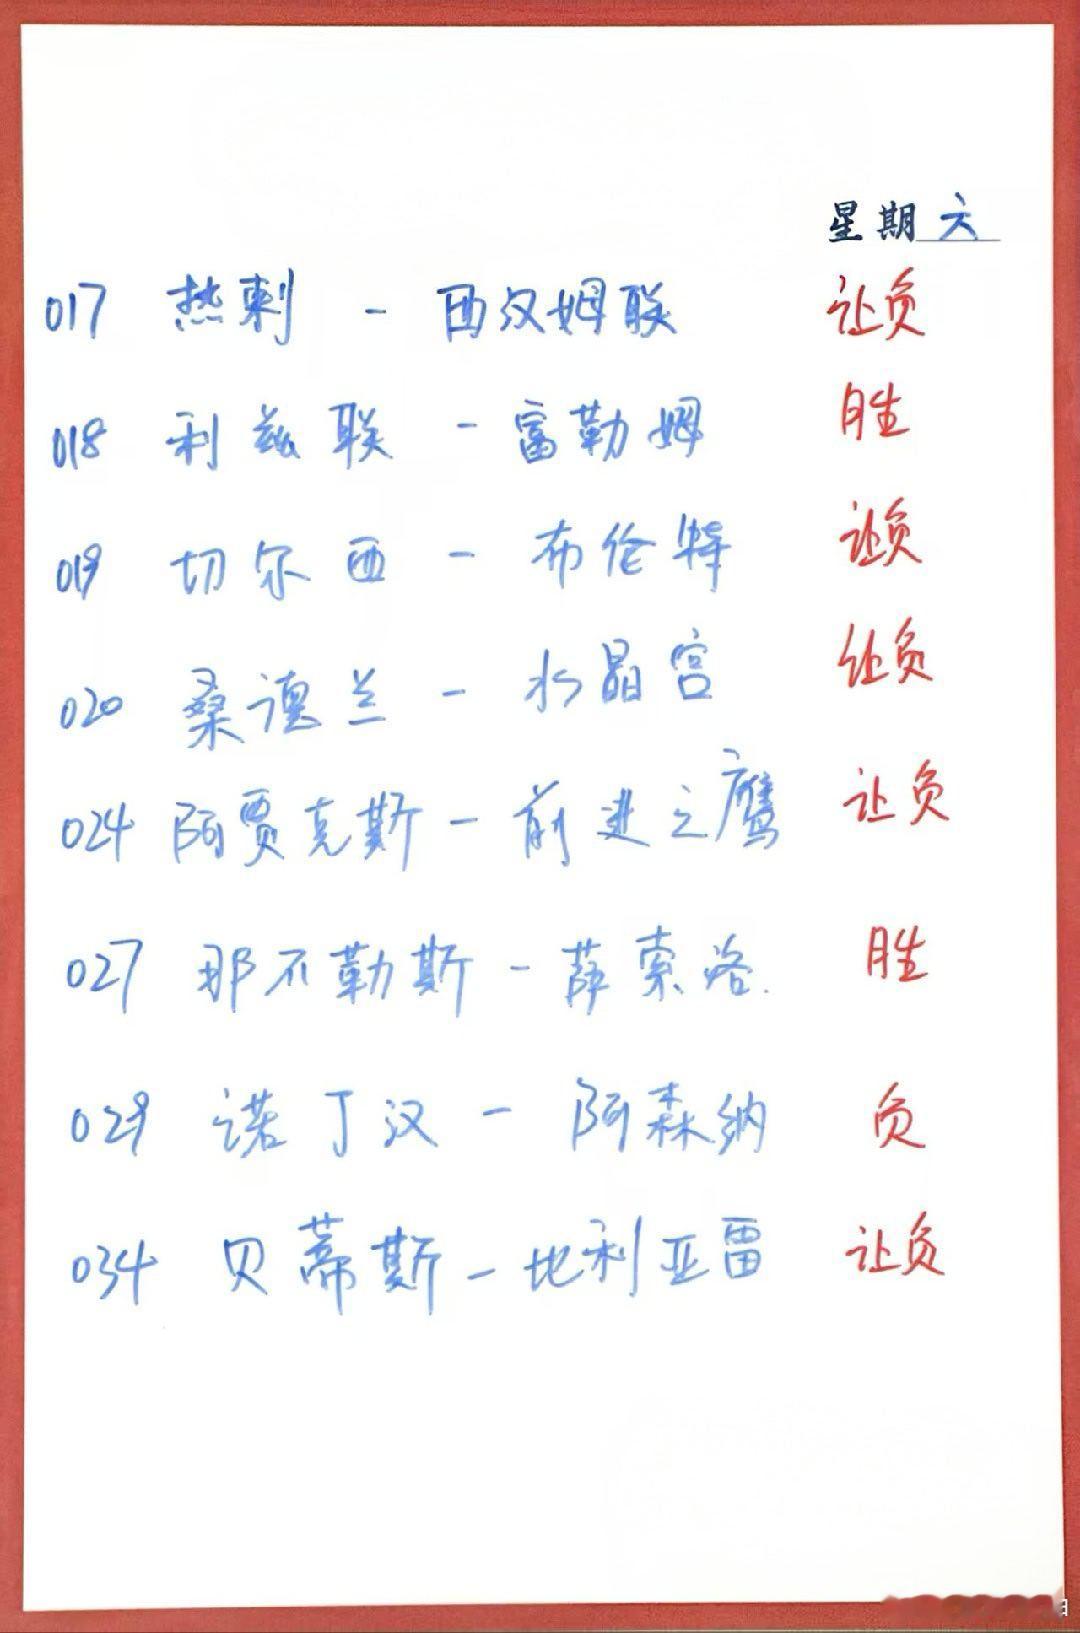 星期六
017 热刺 - 西汉姆联 让负
018 利兹联 - 富勒姆 胜
019 切尔西 - 布伦特 让负
020 桑德兰 - 水晶宫 让负
024 阿贾克斯 - 前进之鹰 让负
027 那不勒斯 - 萨索洛. 胜
029 诺丁汉 - 阿森纳 负
034 贝蒂斯 - 比利亚雷 让负